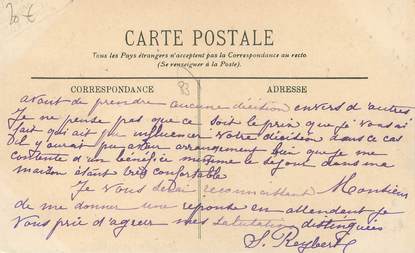 20 €
CARTE POSTALE
Tous les Pays étrangers n'acceptent pas la Correspondance au recto
(Se renseigner à la Poste).
CORRESPONDANCE
ADRESSE
83
avant de prendre aucune décision envers d'autres
Je ne pense pas que ce soit le prix que je vous ai
fait qui ait pu influencer votre décision dans ce cas
il y aurait arrangement que je me
contente d'un bénéfice minime le séjour dans ma
maison étant très confortable
Je vous serai reconnaissant Monsieur
de me donner une réponse en attendant je
vous prie d'agréer mes salutations distinguées
S. Reybert